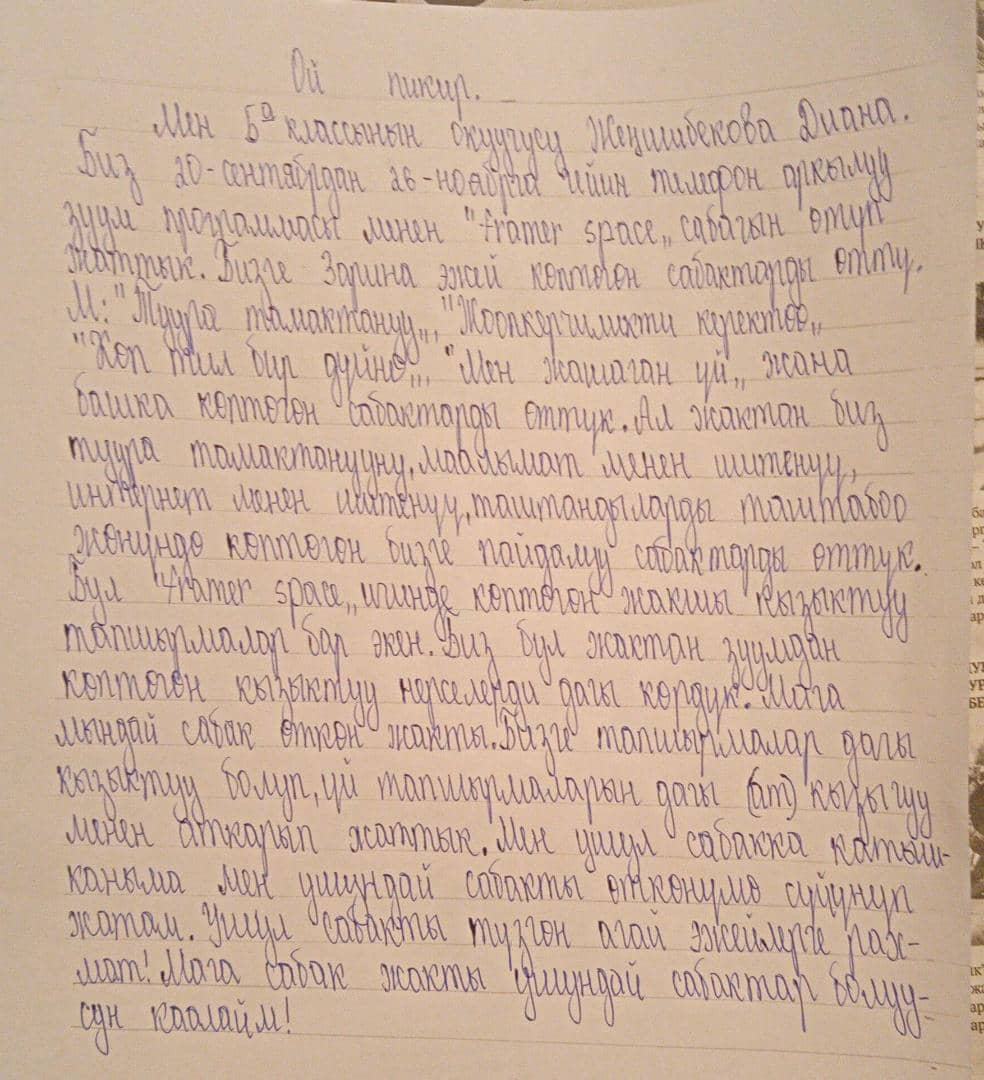 Ой пикир.
Мен 5а классынын окуучусу Жеңишбекова Диана.
Биз 20-сентябрдан 26-ноябрга чейин телефон аркылуу
зуум программасы менен "framer space„ сабагын өтүп
жаттык. Бизге Зарина эжей көптөгөн сабактарды өттү.
М: "Туура тамактануу„, "Жоопкерчиликти керектөө„
"Көп тил бир дүйнө„, "Мен жашаган үй„ жана
башка көптөгөн сабактарды өттүк. Ал жактан биз
туура тамактанууну, маалымат менен иштенүү,
интернет менен иштенүү, таштандыларды таштабоо
жөнүндө көптөгөн бизге пайдалуу сабактарды өттүк.
Бул "framer space„ ичинде көптөгөн жакшы кызыктуу
тапшырмалар бар экен. Биз бул жактан зуумдан
көптөгөн кызыктуу нерселерди дагы көрдүк. Мага
мындай сабак өткөн жакты. Бизге тапшырмалар дагы
кызыктуу болуп, үй тапшырмаларын дагы (ат) кызыгуу
менен аткарып жаттык. Мен ушул сабакка катыш-
каныма мен ушундай сабакты өткөнүмө сүйүнүп
жатам. Ушул сабакты түзгөн агай эжейлерге рах-
мат! Мага сабак жакты ушундай сабактар болуу-
сун каалайм!